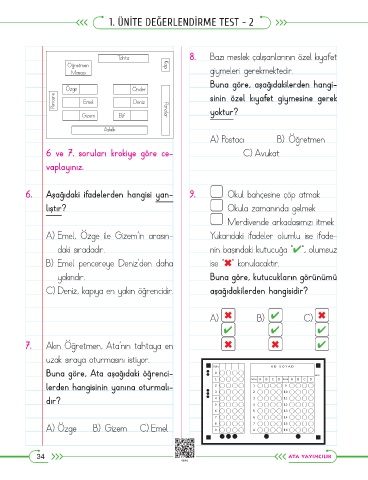 1. ÜNİTE DEĞERLENDİRME TEST - 2
Tahta
Öğretmen
Masası
Kapı
Özge
Önder
Pencere
Emel
Deniz
Gizem
Elif
6 ve 7. soruları krokiye göre ce-
vaplayınız.
6. Aşağıdaki ifadelerden hangisi yan-
lıştır?
A) Emel, Özge ile Gizem'in arasın-
daki sıradadır.
B) Emel pencereye Deniz'den daha
yakındır.
C) Deniz, kapıya en yakın öğrencidir.
7. Akın Öğretmen, Ata'nın tahtaya en
uzak sıraya oturmasını istiyor.
Buna göre, Ata aşağıdaki öğrenci-
lerden hangisinin yanına oturmalı-
dır?
A) Özge B) Gizem C) Emel
8. Bazı meslek çalışanlarının özel kıyafet
giymeleri gerekmektedir.
Buna göre, aşağıdakilerden hangi-
sinin özel kıyafet giymesine gerek
yoktur?
A) Postacı B) Öğretmen
C) Avukat
9. Okul bahçesine çöp atmak
Okula zamanında gelmek
Merdivende arkadaşımızı itmek
Yukarıdaki ifadeler olumlu ise ifade-
nin başındaki kutucuğa "✔", olumsuz
ise "✖" konulacaktır.
Buna göre, kutucukların görünümü
aşağıdakilerden hangisidir?
A) ✖ B) ✔ C) ✖
✔ ✔ ✔
✖ ✖ ✔
34
ATA YAYINCILIK